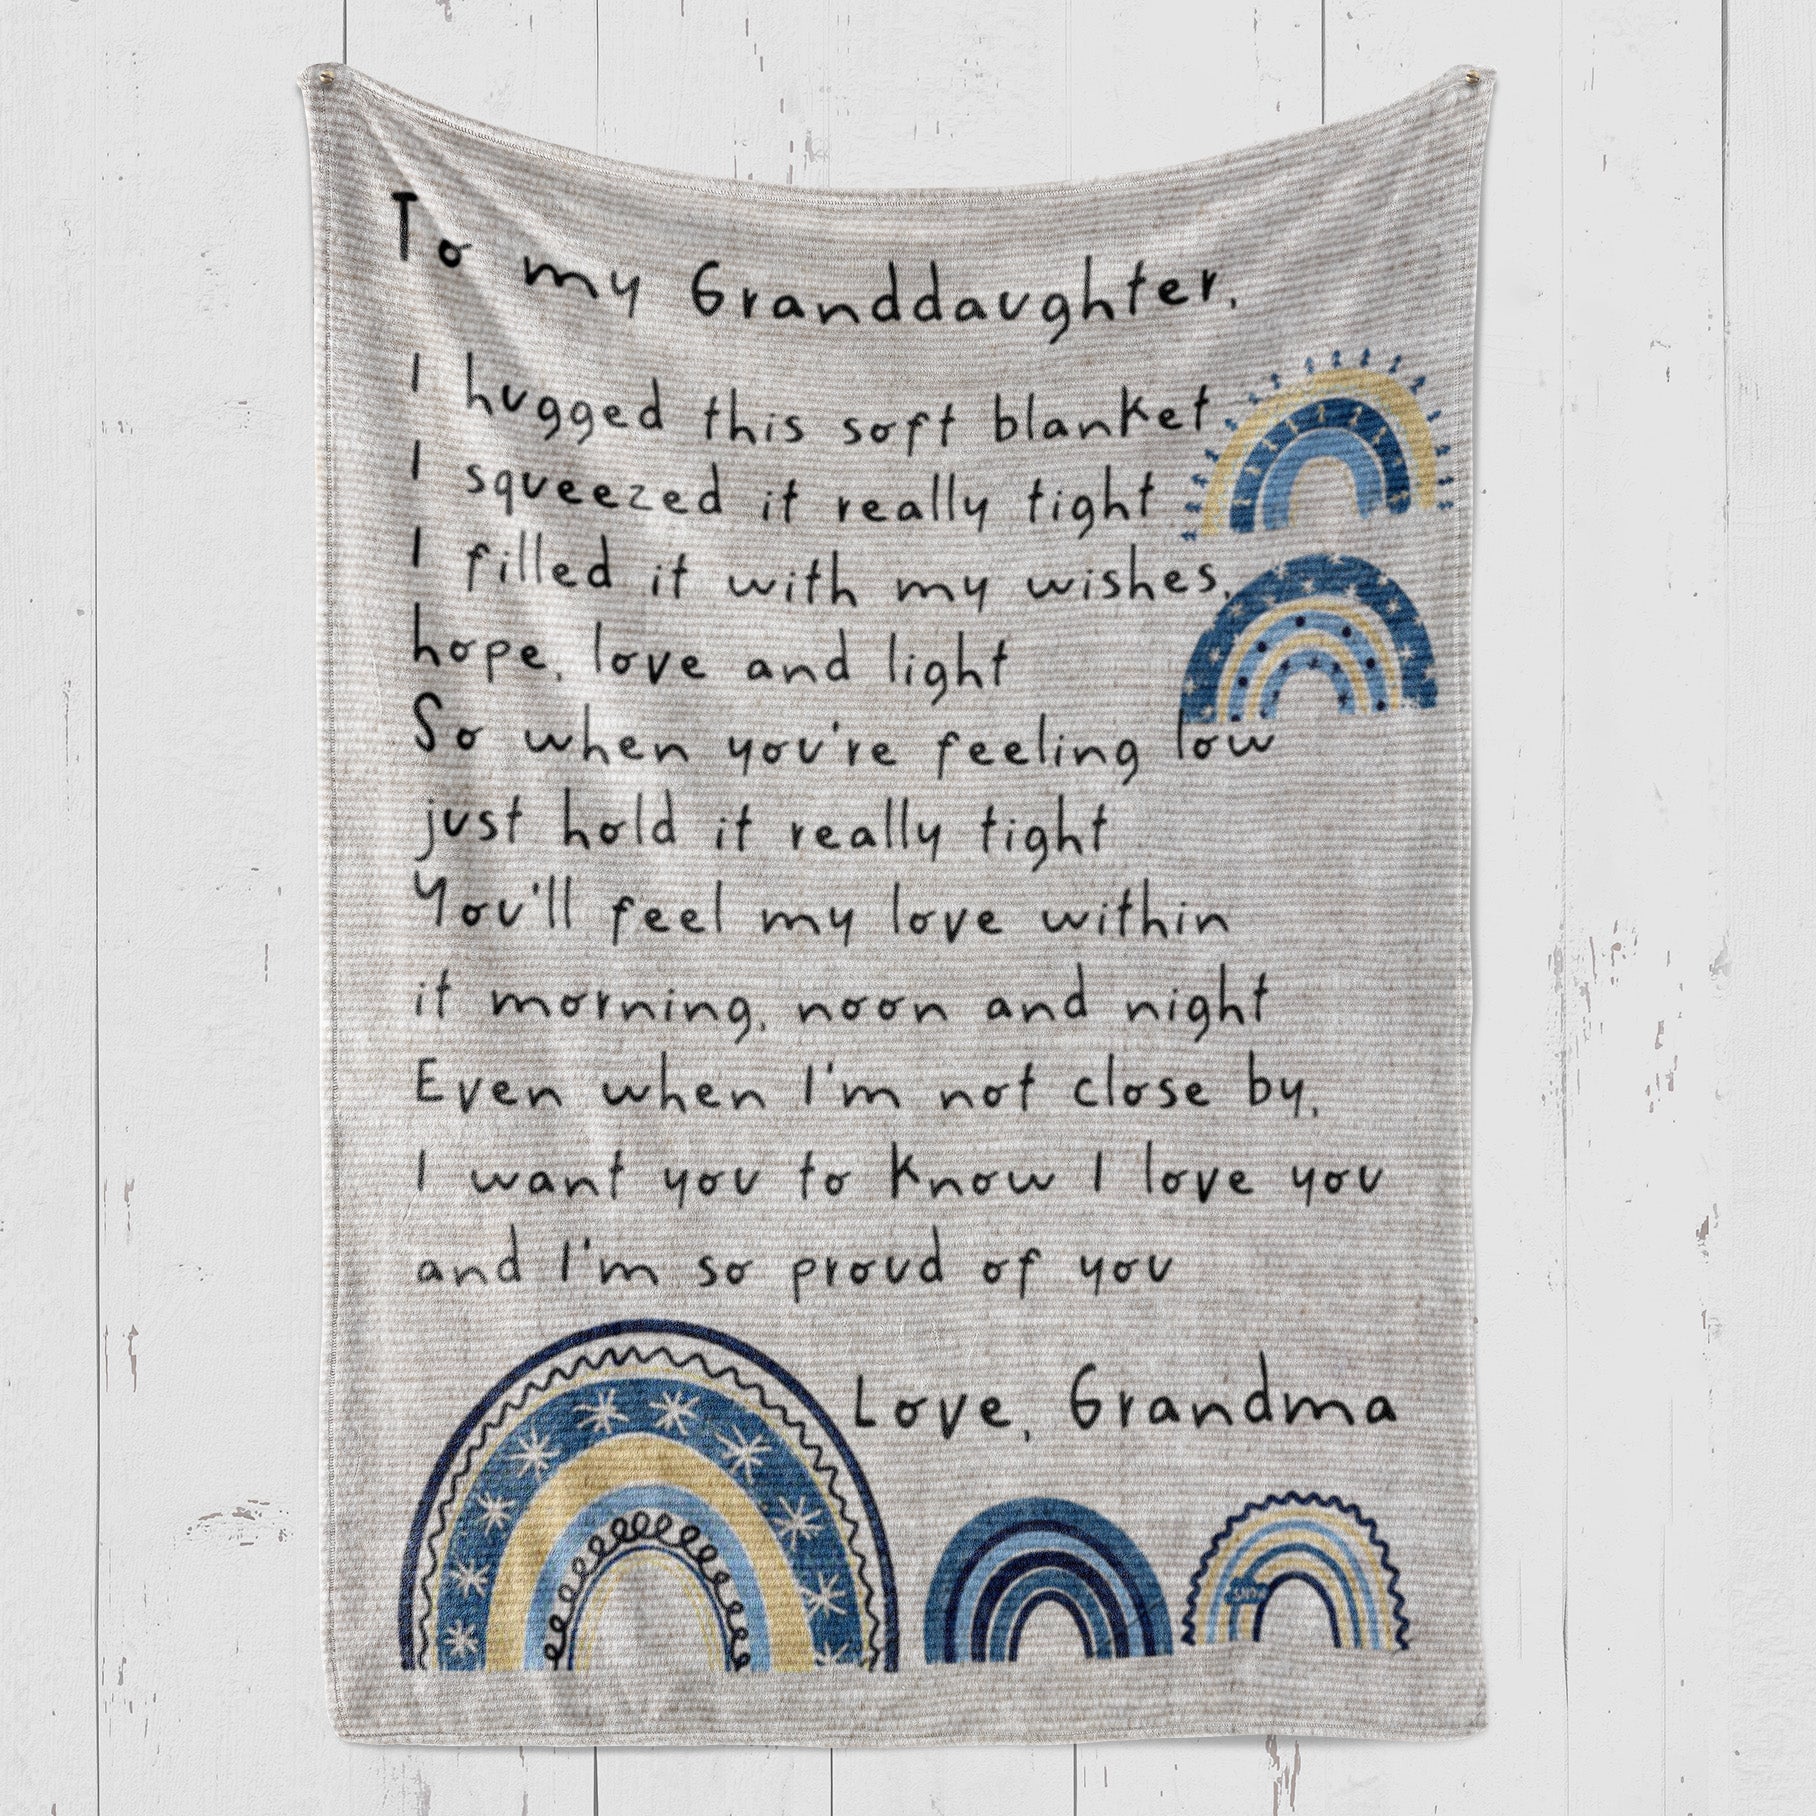 To my Granddaughter,
I hugged this soft blanket
I squeezed it really tight
I filled it with my wishes,
hope, love and light
So when you're feeling low
just hold it really tight
You'll feel my love within
it morning, noon and night
Even when I'm not close by,
I want you to know I love you
and I'm so proud of you
Love, Grandma